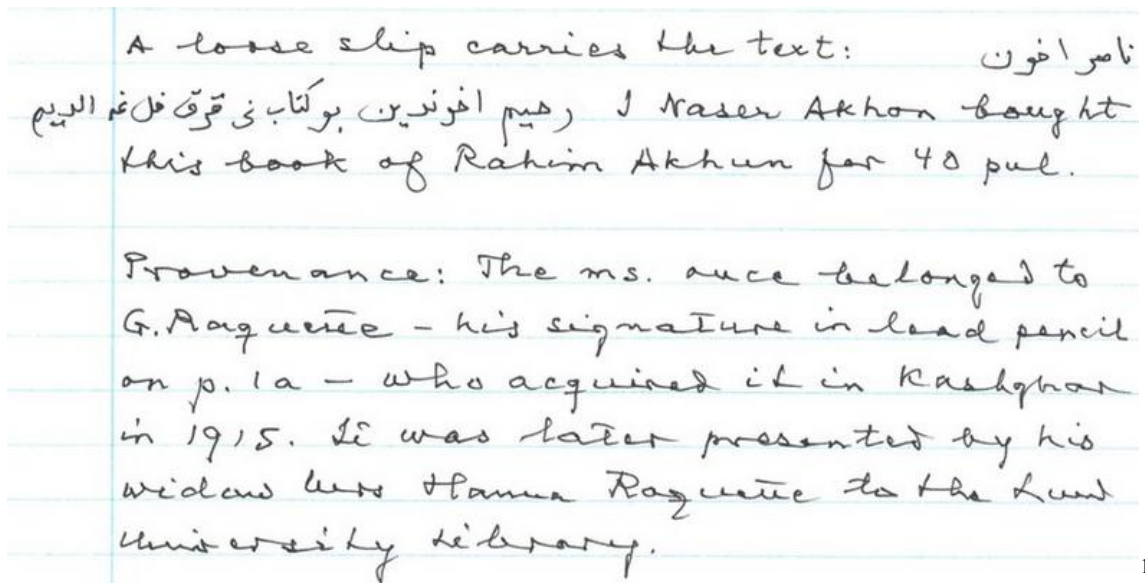 A loose slip carries the text: ناصر اخون
رحیم اخوندین بو کتاب نی قرق فل غه الدیم I Naser Akhon bought
this book of Rahim Akhun for 40 pul.
Provenance: The ms. once belonged to
G. Raquette - his signature in lead pencil
on p. 1a - who acquired it in Kashghar
in 1915. It was later presented by his
widow Mrs Hanna Raquette to the Lund
University Library.